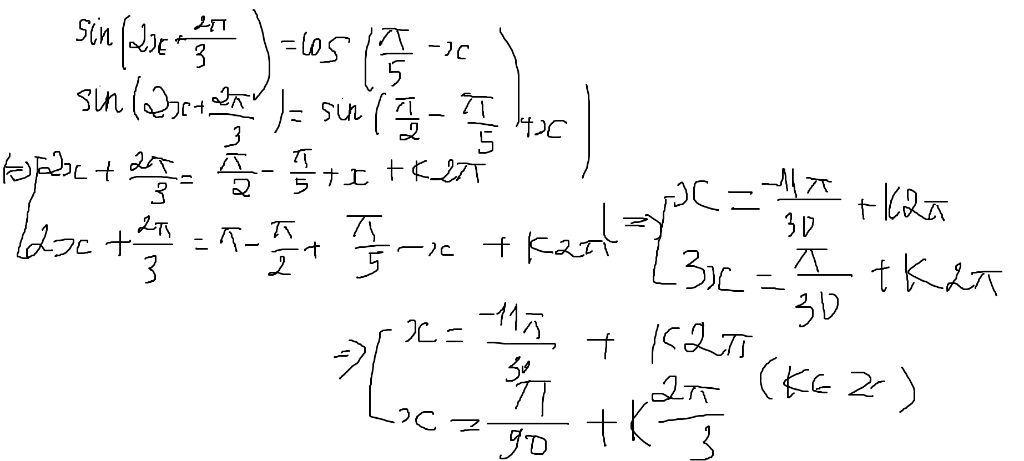 sin(2x + 2π/3) = cos(π/5 - x)
sin(2x + 2π/3) = sin(π/2 - π/5 + x)
⇔ [2x + 2π/3 = π/2 - π/5 + x + K2π
[2x + 2π/3 = π - π/2 + π/5 - x + K2π
⇒ [x = -11π/30 + K2π
[3x = π/30 + K2π
⇒ [x = -11π/30 + K2π
[x = π/90 + K2π/3 (K∈Z)